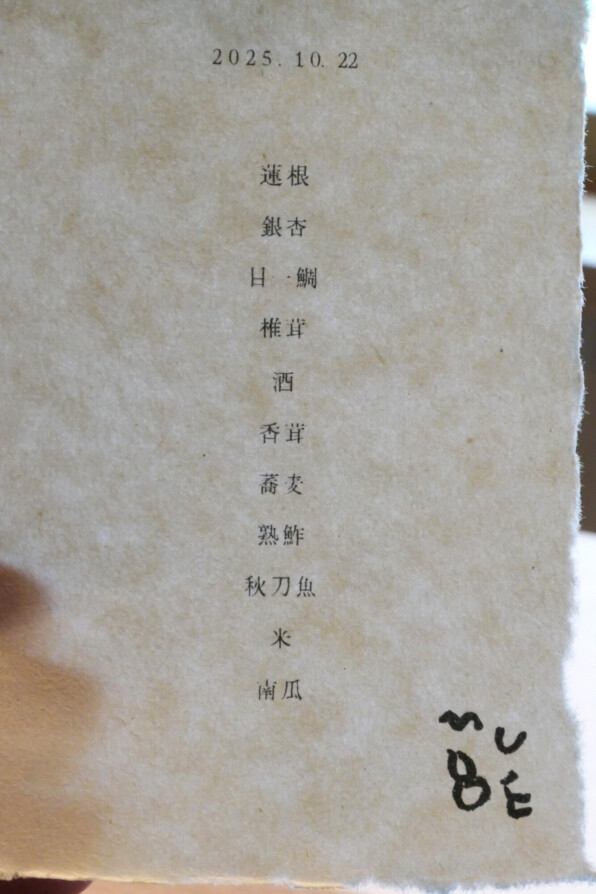 2025.10.22
蓮根
銀杏
目一鯛
椎茸
酒
香茸
蕎麦
熟鮓
秋刀魚
米
南瓜
MU
BE